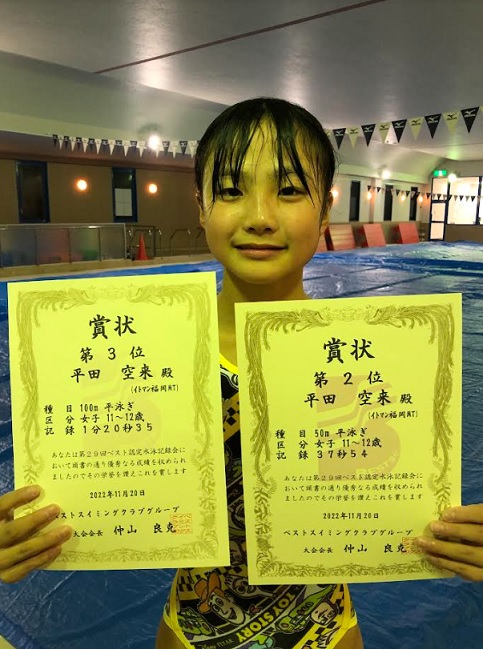 賞状
第 3 位
平田 空来 殿
(イトマン福岡RT)
種 目 100m 平泳ぎ
区 分 女子 11〜12歳
記 録 1分20秒35
あなたは第29回ベスト認定水泳記録会に
おいて頭書の通り優秀なる成績を収められ
ましたのでその栄誉を讃えこれを賞します
2022年11月20日
ベストスイミングクラブグループ
大会会長 仲山 良克
賞状
第 2 位
平田 空来 殿
(イトマン福岡RT)
種 目 50m 平泳ぎ
区 分 女子 11〜12歳
記 録 37秒54
あなたは第29回ベスト認定水泳記録会に
おいて頭書の通り優秀なる成績を収められ
ましたのでその栄誉を讃えこれを賞します
2022年11月20日
ベストスイミングクラブグループ
大会会長 仲山 良克
TOY STORY